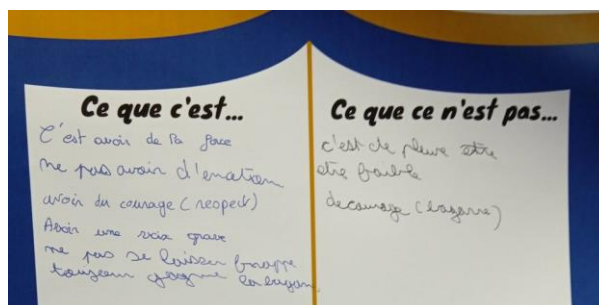 Ce que c'est...
C'est avoir de la force
ne pas avoir d'emation
avoir du courage (respect)
Avoir une voix grave
ne pas se laisser frappe
toujours gagne la bagarre
Ce que ce n'est pas...
c'est de pleure etre
etre fraible
decourage (bagarre)